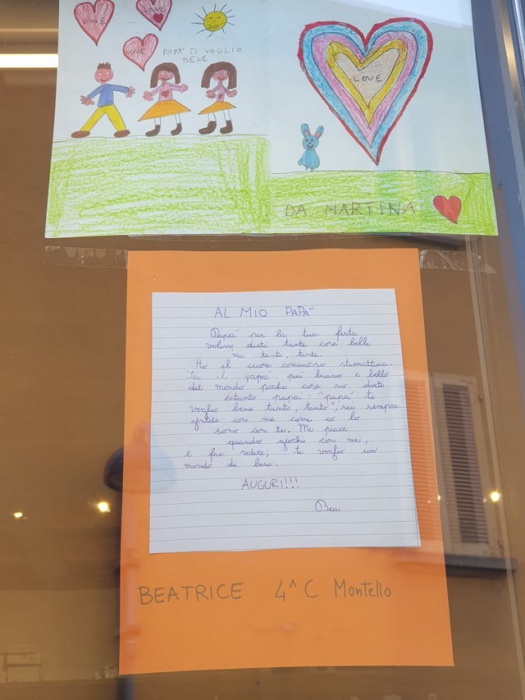 LOVE
LOVE
LOVE
PAPÀ TI VOGLIO
BENE
LOVE
DA MARTINA
AL MIO PAPÀ
Papà per la tua festa
volevo dirti tante cose belle
ma tante, tante.
Ho il cuore commosso stamattina.
Sei il papà più bravo e bello
del mondo poche cose so dirti
intanto papà "papà ti
voglio bene tanto, tanto" sei sempre
gentile con me come io lo
sono con te. Mi piace
quando giochi con me,
e fai ridere; ti voglio un
mondo di bene.
AUGURI!!!
Bea
BEATRICE 4^C Montello